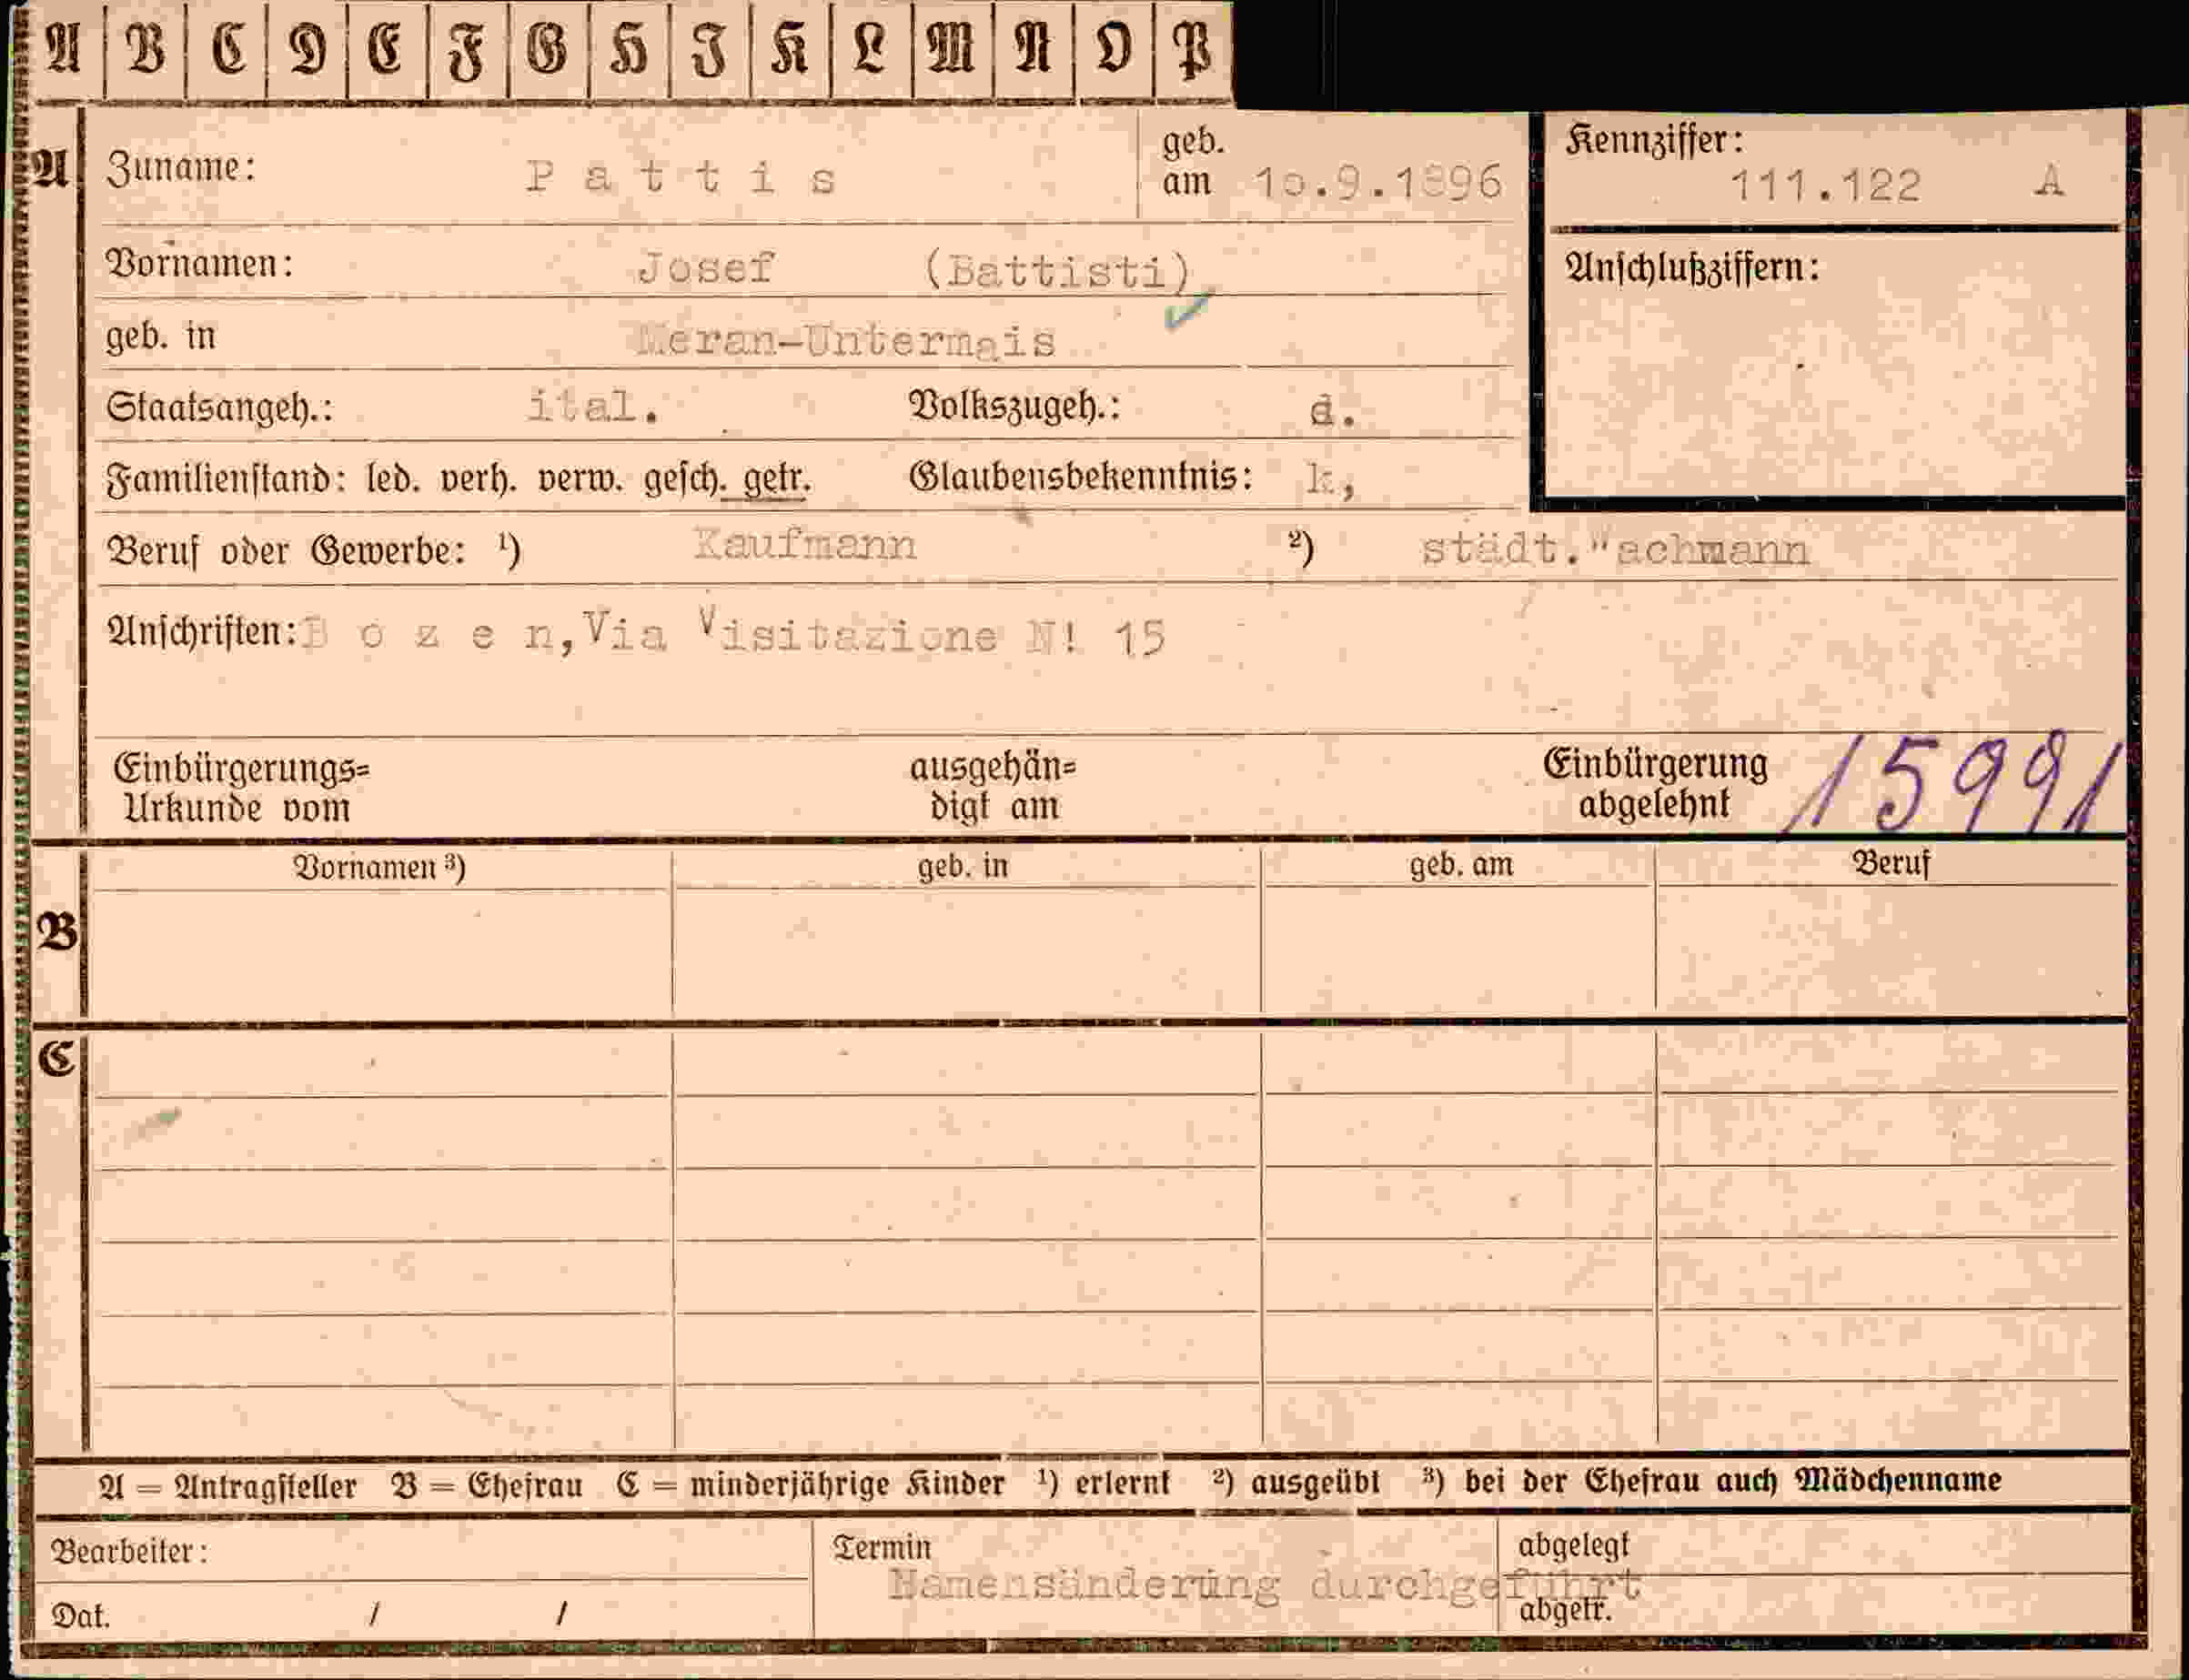 A B C D E F G H J K L M N O P
A Zuname: Pattis geb. am 10.9.1896 Kennziffer: 111.122 A
Vornamen: Josef (Battisti) Anschlußziffern:
geb. in Meran-Untermais
Staatsangeh.: ital. Volkszugeh.: d.
Familienstand: led. verh. verw. gesch. getr. Glaubensbekenntnis: k,
Beruf oder Gewerbe: ¹) Kaufmann ²) städt."achmann
Anschriften: Bozen,Via Visitazione N! 15
Einbürgerungs= ausgehän= Einbürgerung 15991
Urkunde vom digt am abgelehnt
Vornamen ³) geb. in geb. am Beruf
B
C
A = Antragsteller B = Ehefrau C = minderjährige Kinder ¹) erlernt ²) ausgeübt ³) bei der Ehefrau auch Mädchenname
Bearbeiter: Termin abgelegt
Namensänderung durchgeführt
Dat. / / abgetr.